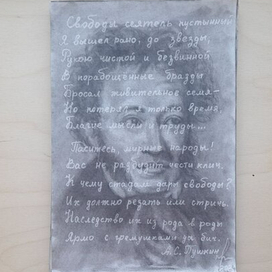 Свободы сеятель пустынный
Я вышел рано, до звезды,
Рукою чистой и безвинной
В порабощенные бразды
Бросал живительное семя—
Но потерял только время,
Благие мысли и труды...
Паситесь, мирные народы!
Вас не разбудит чести клич.
К чему стадам дары свободы?
Их должно резать или стричь.
Наследство их из рода в роды
Ярмо с гремушками да бич.
А.С. Пушкин